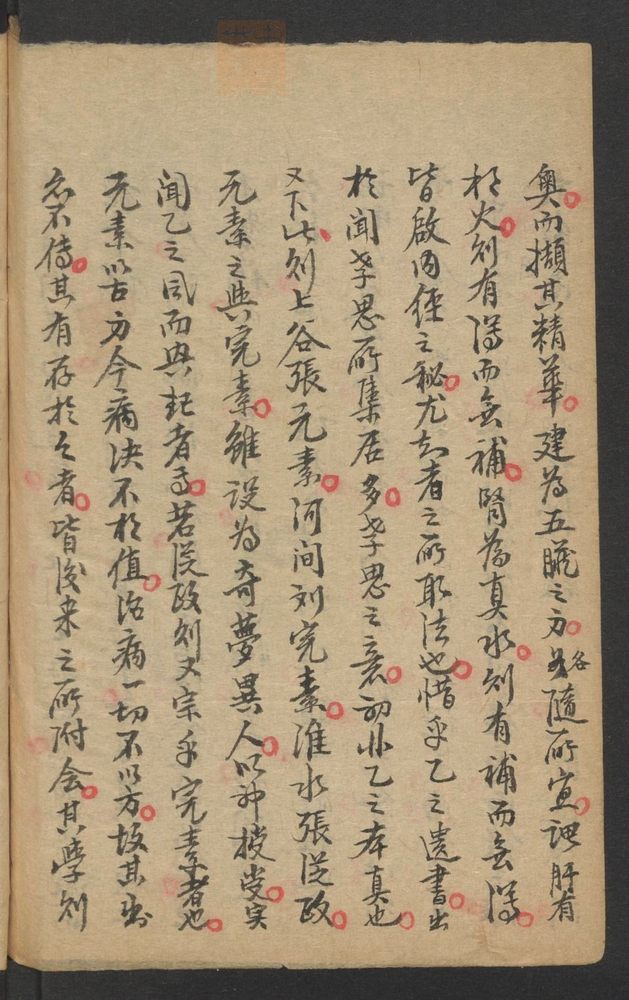 奧而擷其精華建為五臟之方各隨所宜謂肝有
相火則有瀉而無補腎為真水則有補而無瀉
皆啟內經之秘尤知者之所取法也惜乎乙之遺書出
於聞孝思所集居多孝思之意初非乙之本真也
又下此則上谷張元素河间刘完素淮水張從政
元素之與完素雖設為奇夢異人以神授受实
聞乙之风而興起者焉若從政則又宗乎完素者也
元素以古方今病決不相值治病一切不以方故其書
亦不傳其有存於今者皆後来之所附会其學則